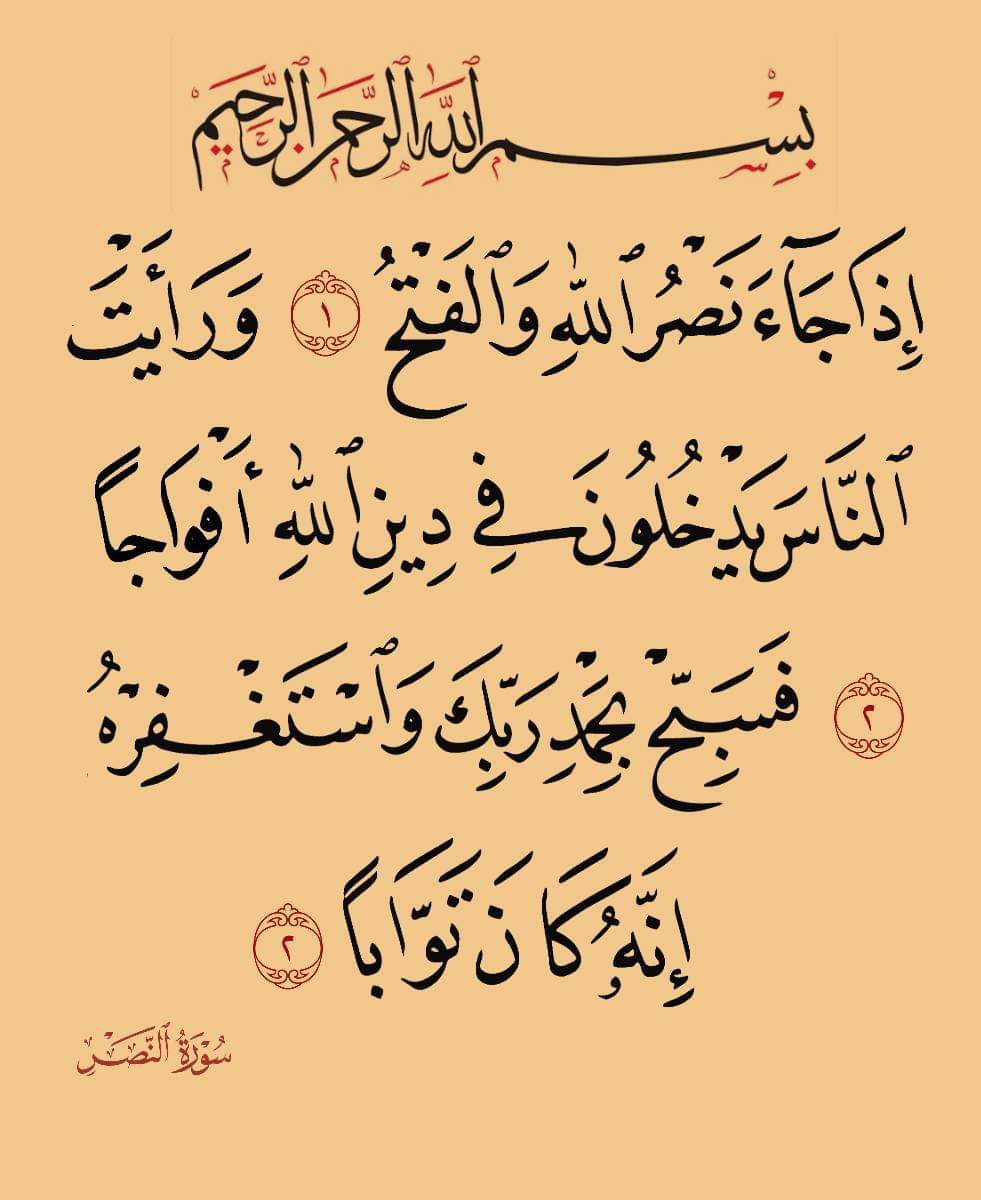 بِسْمِ ٱللَّهِ ٱلرَّحْمَٰنِ ٱلرَّحِيمِ
إِذَا جَآءَ نَصْرُ ٱللَّهِ وَٱلْفَتْحُ ١ وَرَأَيْتَ
ٱلنَّاسَ يَدْخُلُونَ فِي دِينِ ٱللَّهِ أَفْوَاجاً
٢ فَسَبِّحْ بِحَمْدِ رَبِّكَ وَٱسْتَغْفِرْهُ
إِنَّهُۥ كَانَ تَوَّاباً ٢
سُوْرَةُ ٱلنَّصْرِ